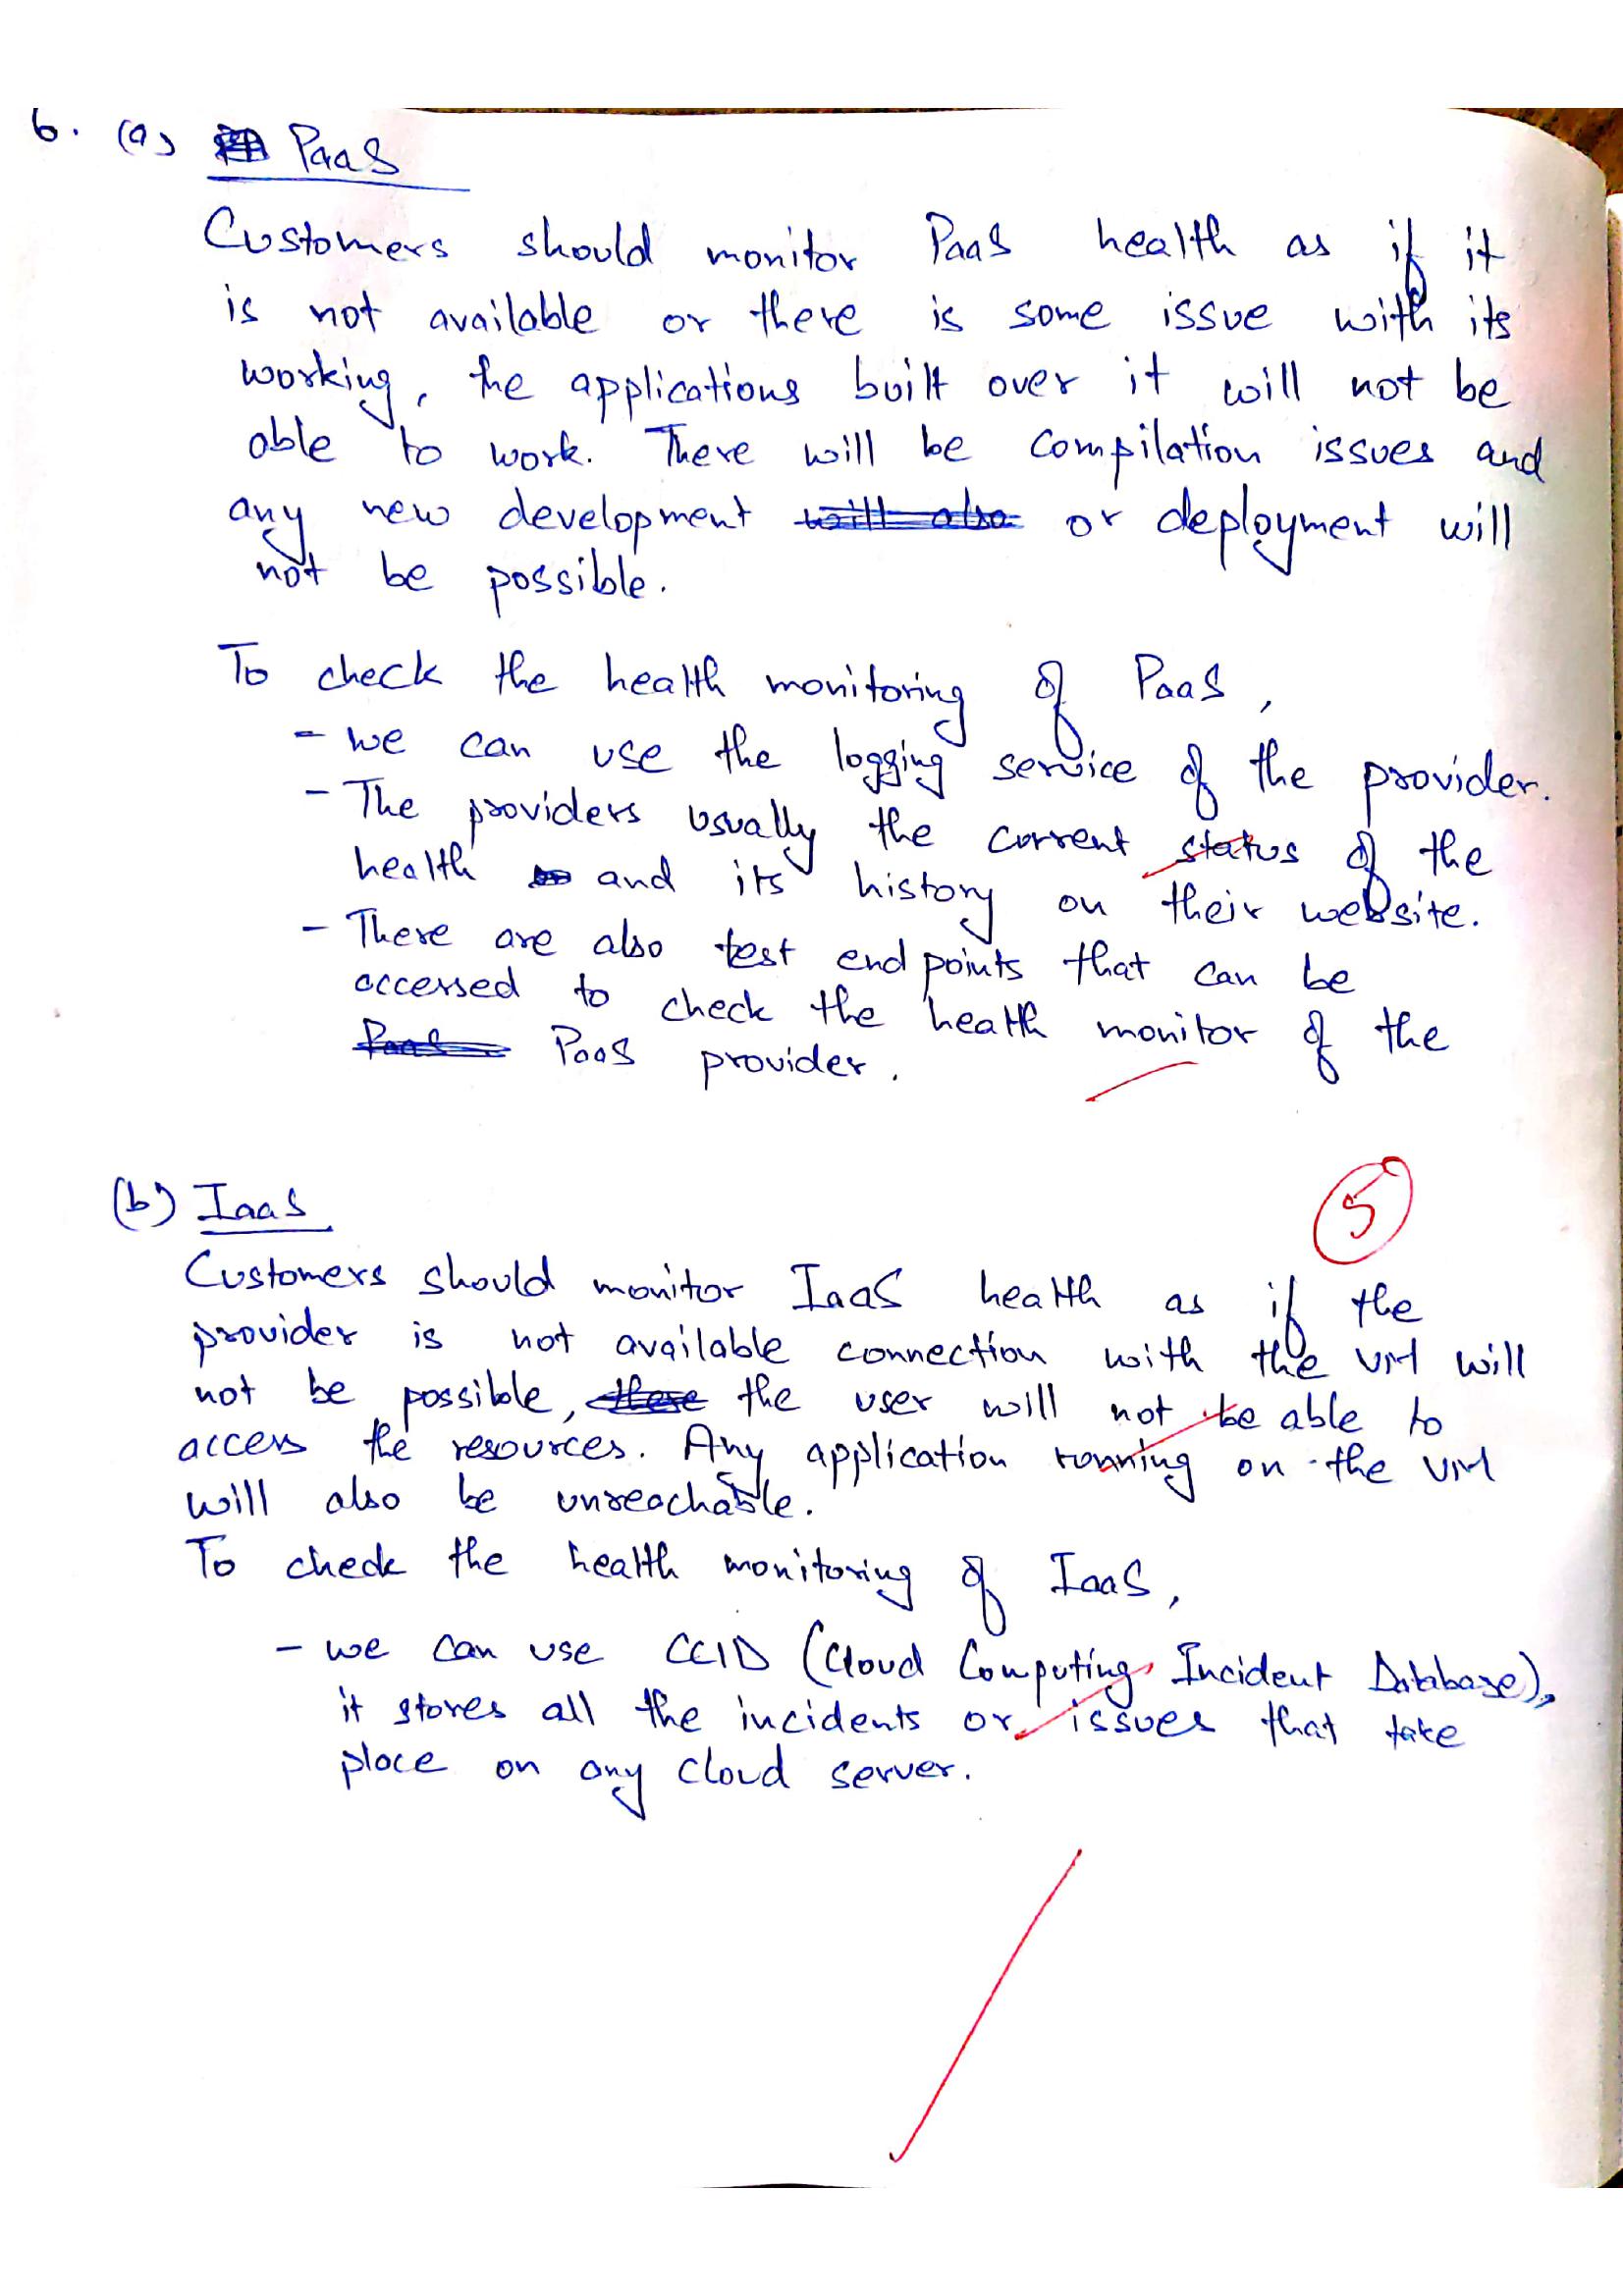 6. (a) PaaS
Customers should monitor PaaS health as if it
is not available or there is some issue with its
working, the applications built over it will not be
able to work. There will be compilation issues and
any new development will also or deployment will
not be possible.
To check the health monitoring of PaaS,
- we can use the logging service of the provider.
- The providers usually the current status of the
health and its history on their website.
- There are also test end points that can be
accessed to check the health monitor of the
PaaS PaaS provider.
5
(b) IaaS
Customers should monitor IaaS health as if the
provider is not available connection with the VM will
not be possible, there the user will not be able to
access the resources. Any application running on the VM
will also be unreachable.
To check the health monitoring of IaaS,
- we can use CCID (Cloud Computing Incident Database),
it stores all the incidents or issues that take
place on any cloud server.